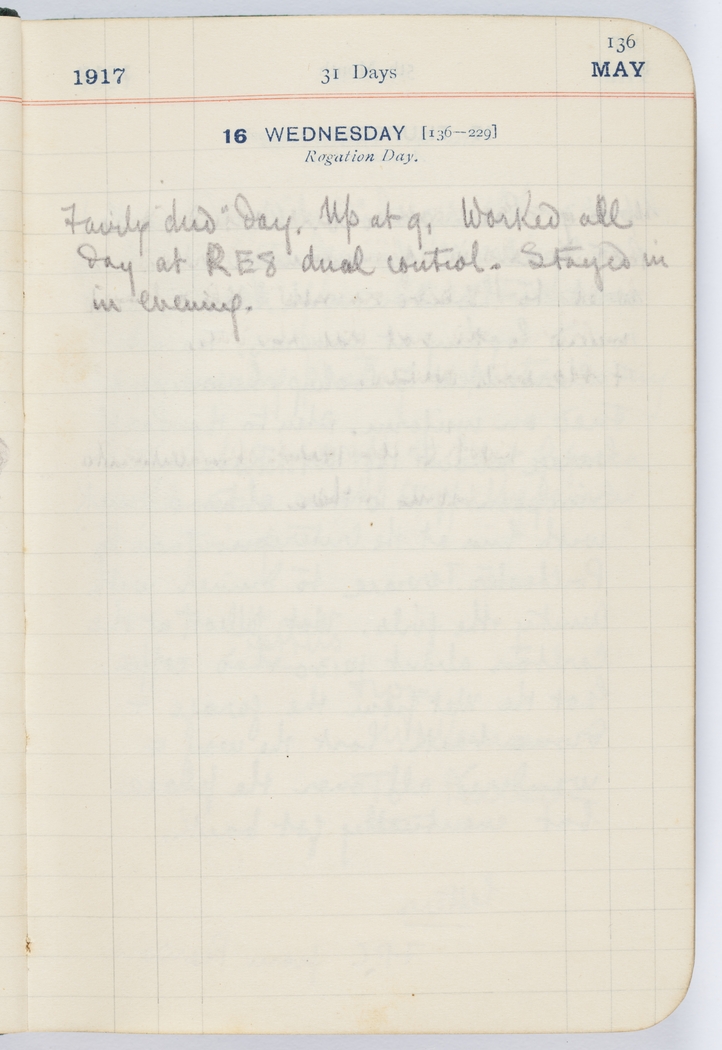 136
1917 31 Days MAY
16 WEDNESDAY [136—229]
Rogation Day.
Fairly "dud" day. Up at 9. Worked all
day at RE8 dual control. Stayed in
in evening.